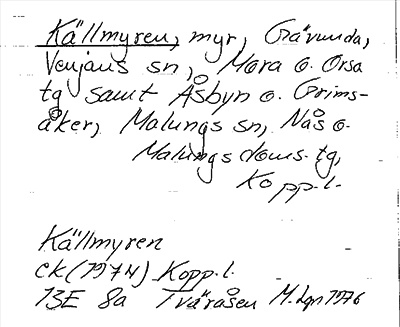 Källmyren, myr, Gävunda,
Venjans sn, Mora o. Orsa
tg samt Åsbyn o. Grims-
åker, Malungs sn, Nås o.
Malungs doms. tg,
Kopp. l.
Källmyren
ek (1974) Kopp. l.
13E 8a Tväråsen M. Lgn 1976